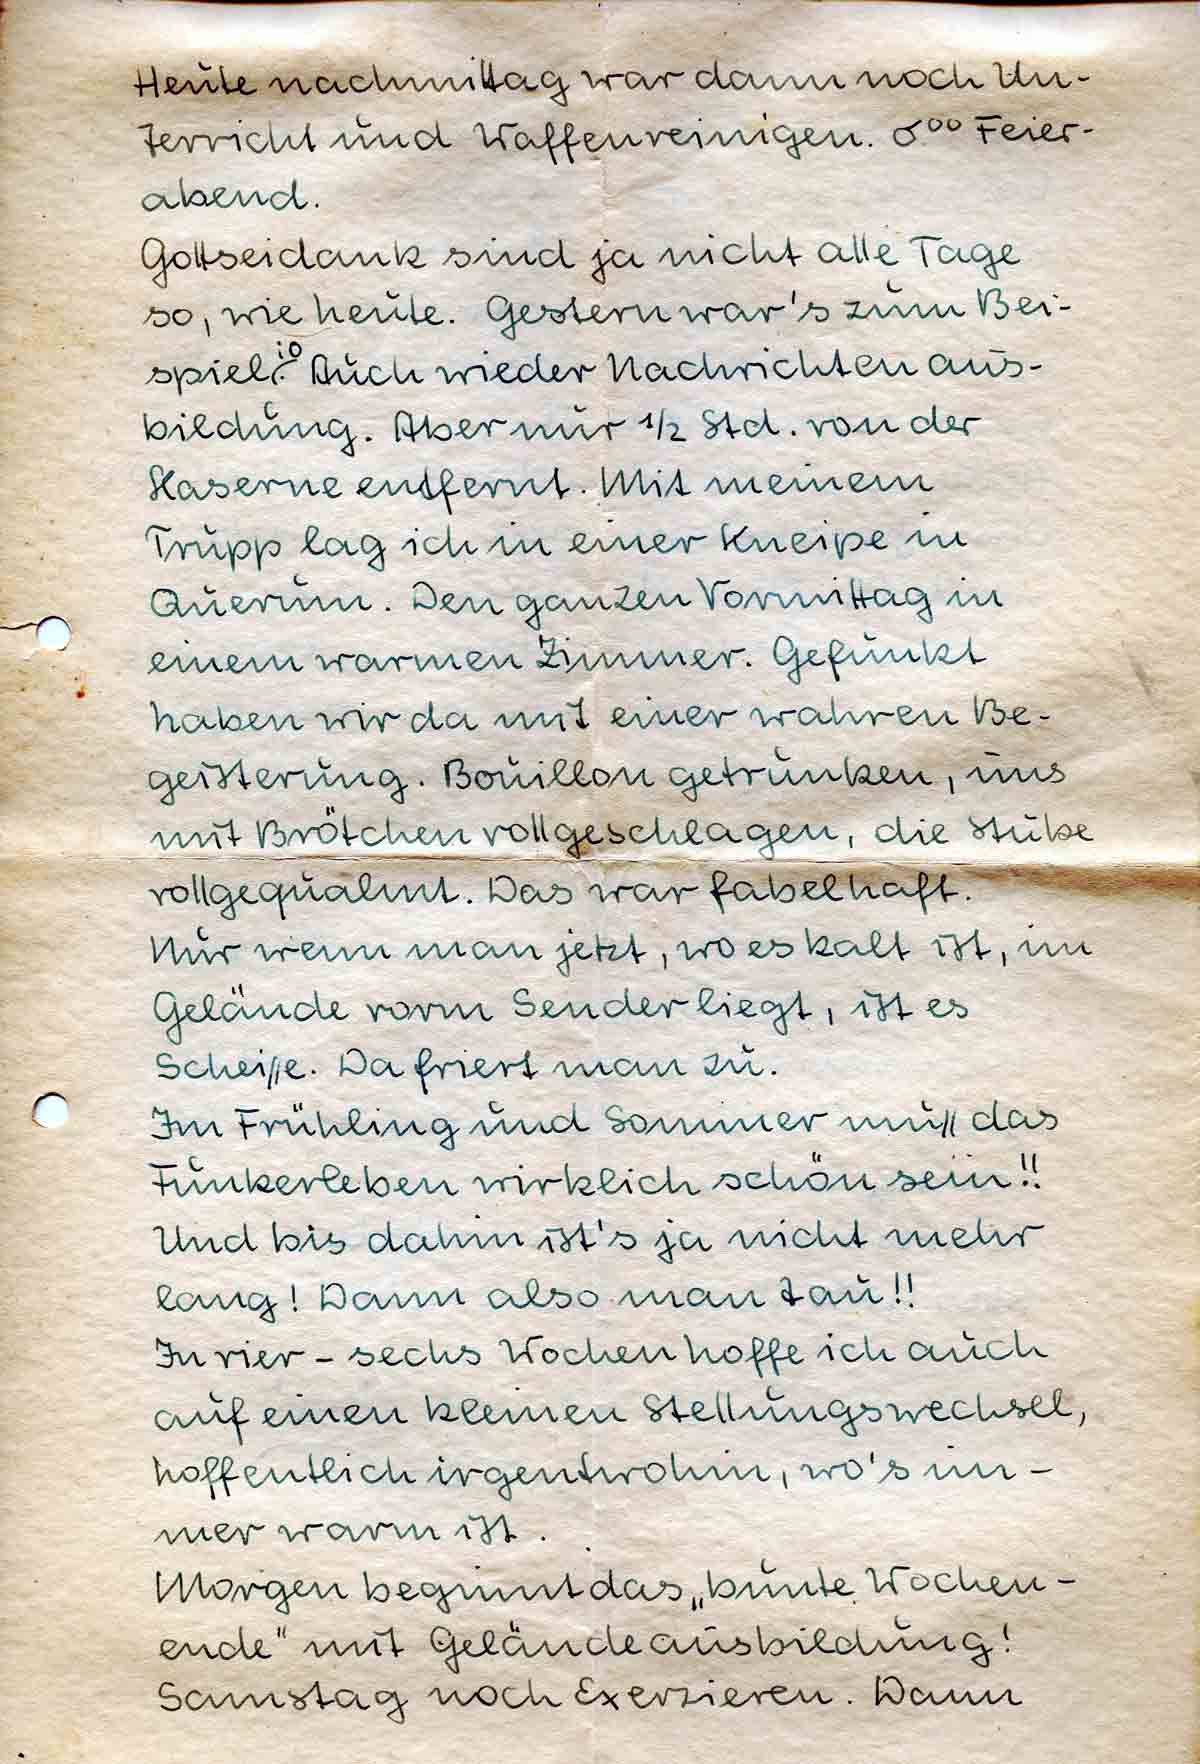 Heute nachmittag war dann noch Un-
terricht und Waffenreinigen. 6⁰⁰ Feier-
abend.
Gottseidank sind ja nicht alle Tage
so, wie heute. Gestern war's zum Bei-
spiel so: Auch wieder Nachrichtenaus-
bildung. Aber nur 1/2 Std. von der
Kaserne entfernt. Mit meinem
Trupp lag ich in einer Kneipe in
Querum. Den ganzen Vormittag in
einem warmen Zimmer. Gefunkt
haben wir da mit einer wahren Be-
geisterung. Bouillon getrunken, uns
mit Brötchen vollgeschlagen, die Stube
vollgequalmt. Das war fabelhaft.
Nur wenn man jetzt, wo es kalt ist, im
Gelände vorm Sender liegt, ist es
Scheiße. Da friert man zu.
Im Frühling und Sommer muß das
Funkerleben wirklich schön sein!!
Und bis dahin ist's ja nicht mehr
lang! Dann also man tau!!
In vier – sechs Wochen hoffe ich auch
auf einen kleinen Stellungswechsel,
hoffentlich irgentwohin, wo's im-
mer warm ist.
Morgen beginnt das „bunte Wochen-
ende" mit Geländeausbildung!
Samstag noch Exerzieren. Dann